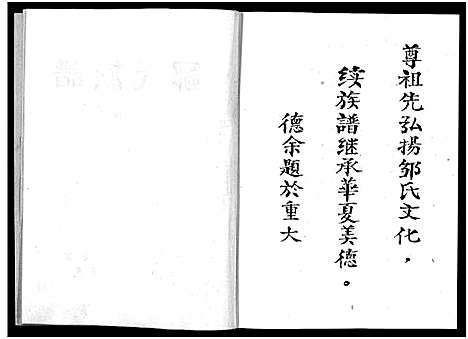 尊祖先弘扬邹氏文化，
续族譜继承華夏美德。
德余题於重大